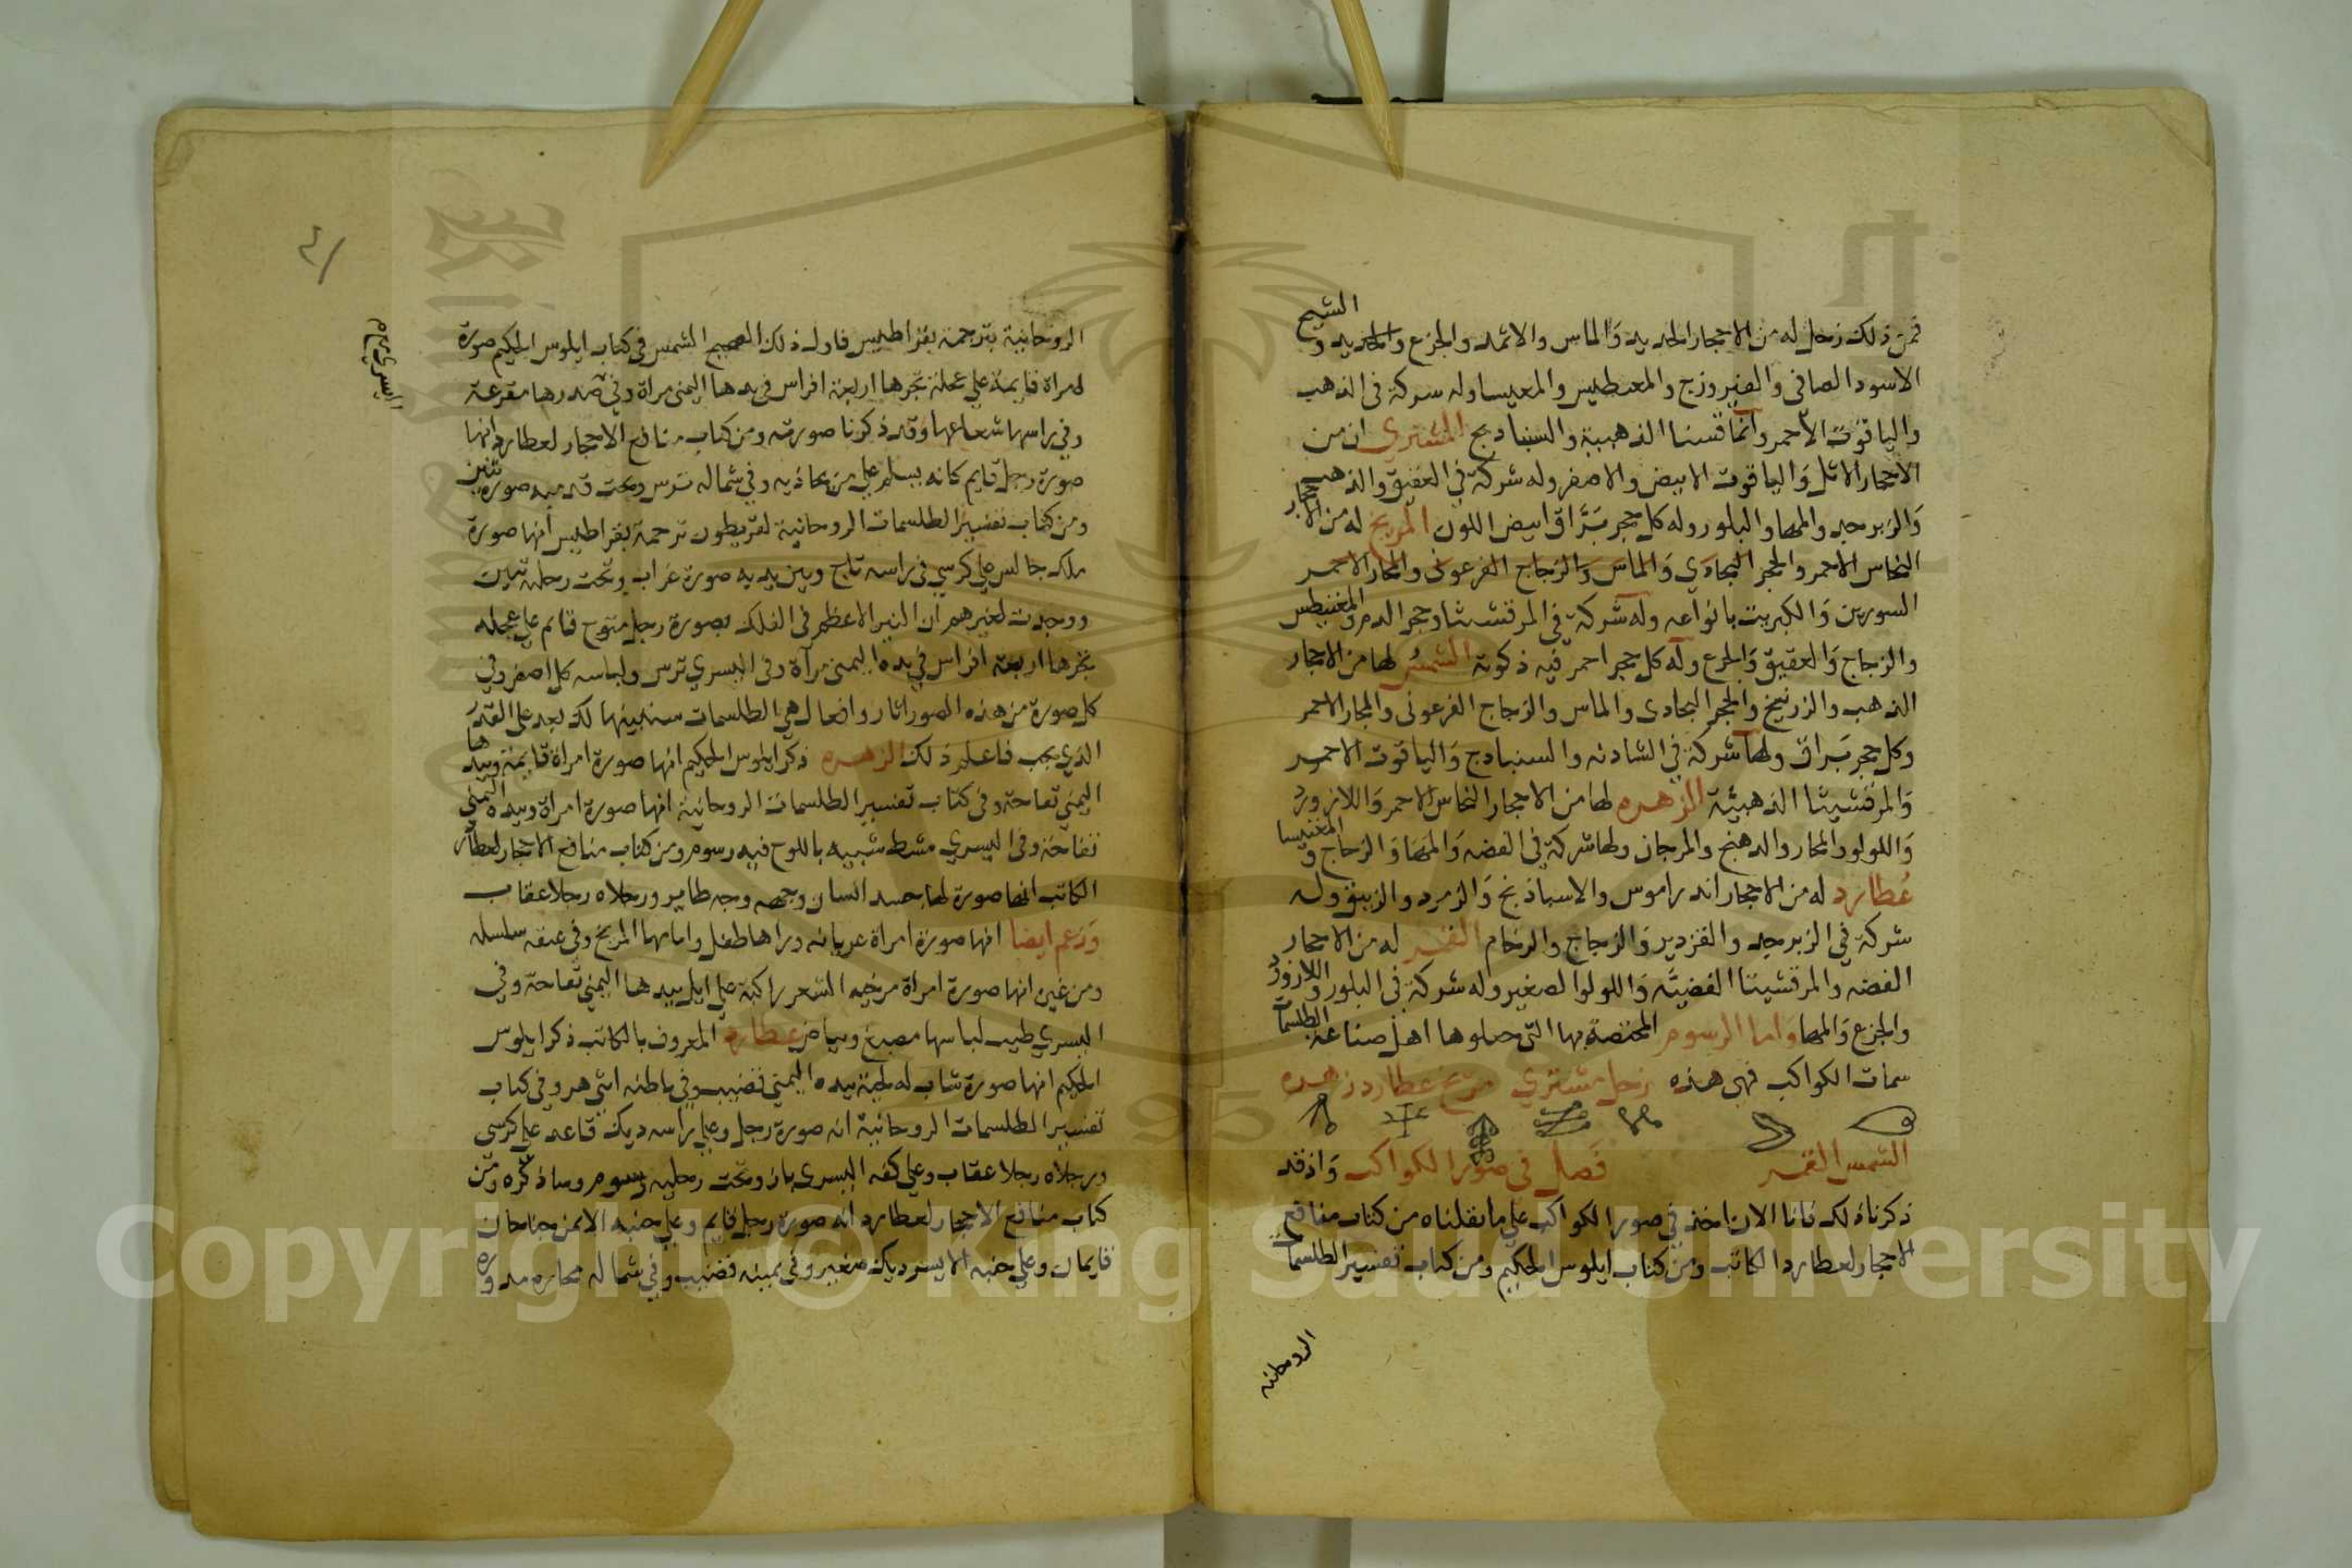 الشيح
فمن ذلك زحل له من الاحجار الحديد والماس والاثمد والجزع والحديد و
الاسود الصافى والفيروزج والمغطيس والمعيسا وله سركة فى الذهب
والياقوت الاحمر وانما قسنا الذهبية والسنبادج المشتري ان من
الاحجار الاثل والياقوت الابيض والاصفر وله شركة في العقيق والذهب
والزبرجد والمها والبلور وله كل حجر براق ابيض اللون المريخ له من الاحجار
النحاس الاحمر والحجر البجادي والماس والزجاج الفرعونى والمحار الاحمر
السورين والكبريت بانواعه وله شركة في المرقشيشا وحجر الدم والمغنيطس
والزجاج والعقيق والجزع وله كل حجر احمر فيه ذكوته الشمس لها من الاحجار
الذهب والزرنيخ والحجر البجادى والماس والزجاج الفرعونى والمحار الاحمر
وكل حجر براق ولها شركة في الشادنه والسنبادج والياقوت الاحمر
والمرقشيثا الذهبيّة الزهره لها من الاحجار النحاس الاحمر واللازورد
واللولو والمحار والدهنج والمرجان ولها شركة في الفضه والمها والزجاج و المغنيسا
عُطارد له من الاحجار اندراموس والاسباذنج والزمرد والزيبق وله
شركة في الزبرجد والقزدير والزجاج والرخام القمر له من الاحجار
الفضه والمرقشيثا الفضيّه واللولوا الصغير وله شركة فى البلور واللازورد
والجزع والمها واما الرسوم المختصة بها التى جعلوها اهل صناعة الطلسمات
سمات الكواكب فهى هذه زحل مشتري مريخ عطارد زهره
الشمس القمر فَصل فى صور الكواكب وَاذقد
ذكرنا ذلك فانا الان ناخذ في صور الكواكب علي ما نقلناه من كتاب منافع
الاحجار لعطارد الكاتب ومن كتاب ايلوس الحكيم ومن كتاب تفسير الطلسمات
الروحانيه
الروحانية بترجمة بقراطيس فاول ذلك الصحيح الشمس فى كتاب ايلوس الحكيم صورة
امراة قايمة علي عجلة تجرها اربعة افراس في يدها اليمنى مراة وفي صدرها مقرعة
وفي راسها شعاعها وقد ذكرنا صورته ومن كتاب منافع الاحجار لعطارد انها
صورة رجل قايم كانه يسلم علي من يحاذيه وفي شماله ترس وتحت قدميه صورة تنين
ومن كتاب تفسير الطلسمات الروحانية لقريطون ترجمة بقراطيس انها صورة
ملك جالس علي كرسي فى راسه تاج وبين يديه صورة غراب وتحت رجله تنين
ووجدت لغيرهم ان النير الاعظم فى الفلك بصورة رجل متوج قايم علي عجله
تجرها اربعة افراس في يده اليمنى مرآة وفى اليسري ترس ولباسه كل اصفر وفي
كل صورة من هذه الصور اثار وافعال هى الطلسمات سنبينها لك بعد على القدر
الذي يجب فاعلم ذلك الزهره ذكر ايلوس الحكيم انها صورة امراة قايمة وبيدها
اليمني تفاحة وفى كتاب تفسير الطلسمات الروحانية انها صورة امراة وبيده اليمني
تفاحة وفى اليسري مشط شبيه باللوح فيه رسوم ومن كتاب منافع الاحجار لعطارد
الكاتب انها صورة لها جسد انسان وجهه وجه طاير ورجلاه رجلا عقاب
وزعم ايضا انها صورة امراة عريانه وراها طفل وامامها المريخ وفى عنقه سلسله
ومن غيره انها صورة امراة مرخيه الشعر راكبة علي ايل بيدها اليمني تفاحة وفي
اليسري طيب لباسها مصبغ وبياض عطارد المعروف بالكاتب ذكر ايلوس
الحكيم انها صورة شاب له لحية بيده اليمني قضيب وفي باطنه اثى هرو فى كتاب
تفسير الطلسمات الروحانية انه صورة رجل وعلي راسه ديك قاعد علي كرسى
ورجلاه رجلا عقاب وعلي كفه اليسرى باز وتحت رجليه رسوم وساذكره ومن
كتاب منافع الاحجار لعطارد انه صورة رجل قايم وعلي جنبه الايمن جناحان
قايمان وعلي جنبه الايسر ديك صغير وفى يمينه قضيب وفي شماله محاره مدوره
Copyright © King Saud University